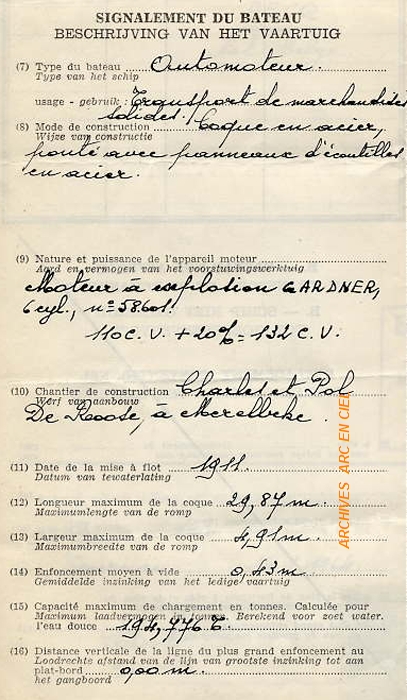 SIGNALEMENT DU BATEAU
BESCHRIJVING VAN HET VAARTUIG
(7) Type du bateau Automoteur.
Type van het schip
usage - gebruik : Transport de marchandises
solides.
(8) Mode de construction Coque en acier,
Wijze van constructie
ponté avec panneaux d'écoutilles
en acier.
(9) Nature et puissance de l'appareil moteur
Aard en vermogen van het voorstuwingswerktuig
Moteur à explosion GARDNER,
6 cyl., n° 58601.
110 C.V. + 20% = 132 C.V.
(10) Chantier de construction Charles et Pol
Werf van aanbouw
De Roose, à Merelbeke.
(11) Date de la mise à flot 1911.
Datum van tewaterlating
(12) Longueur maximum de la coque 29,87 m.
Maximumlengte van de romp
(13) Largeur maximum de la coque 4,91 m.
Maximumbreedte van de romp
(14) Enfoncement moyen à vide 0,43 m.
Gemiddelde inzinking van het ledige vaartuig
(15) Capacité maximum de chargement en tonnes. Calculée pour
Maximum laadvermogen in tonnes. Berekend voor zoet water.
l'eau douce 194,776 T.
(16) Distance verticale de la ligne du plus grand enfoncement au
Loodrechte afstand van de lijn van grootste inzinking tot aan
plat-bord 0,00 m.
het gangboord
ARCHIVES ARC EN CIEL